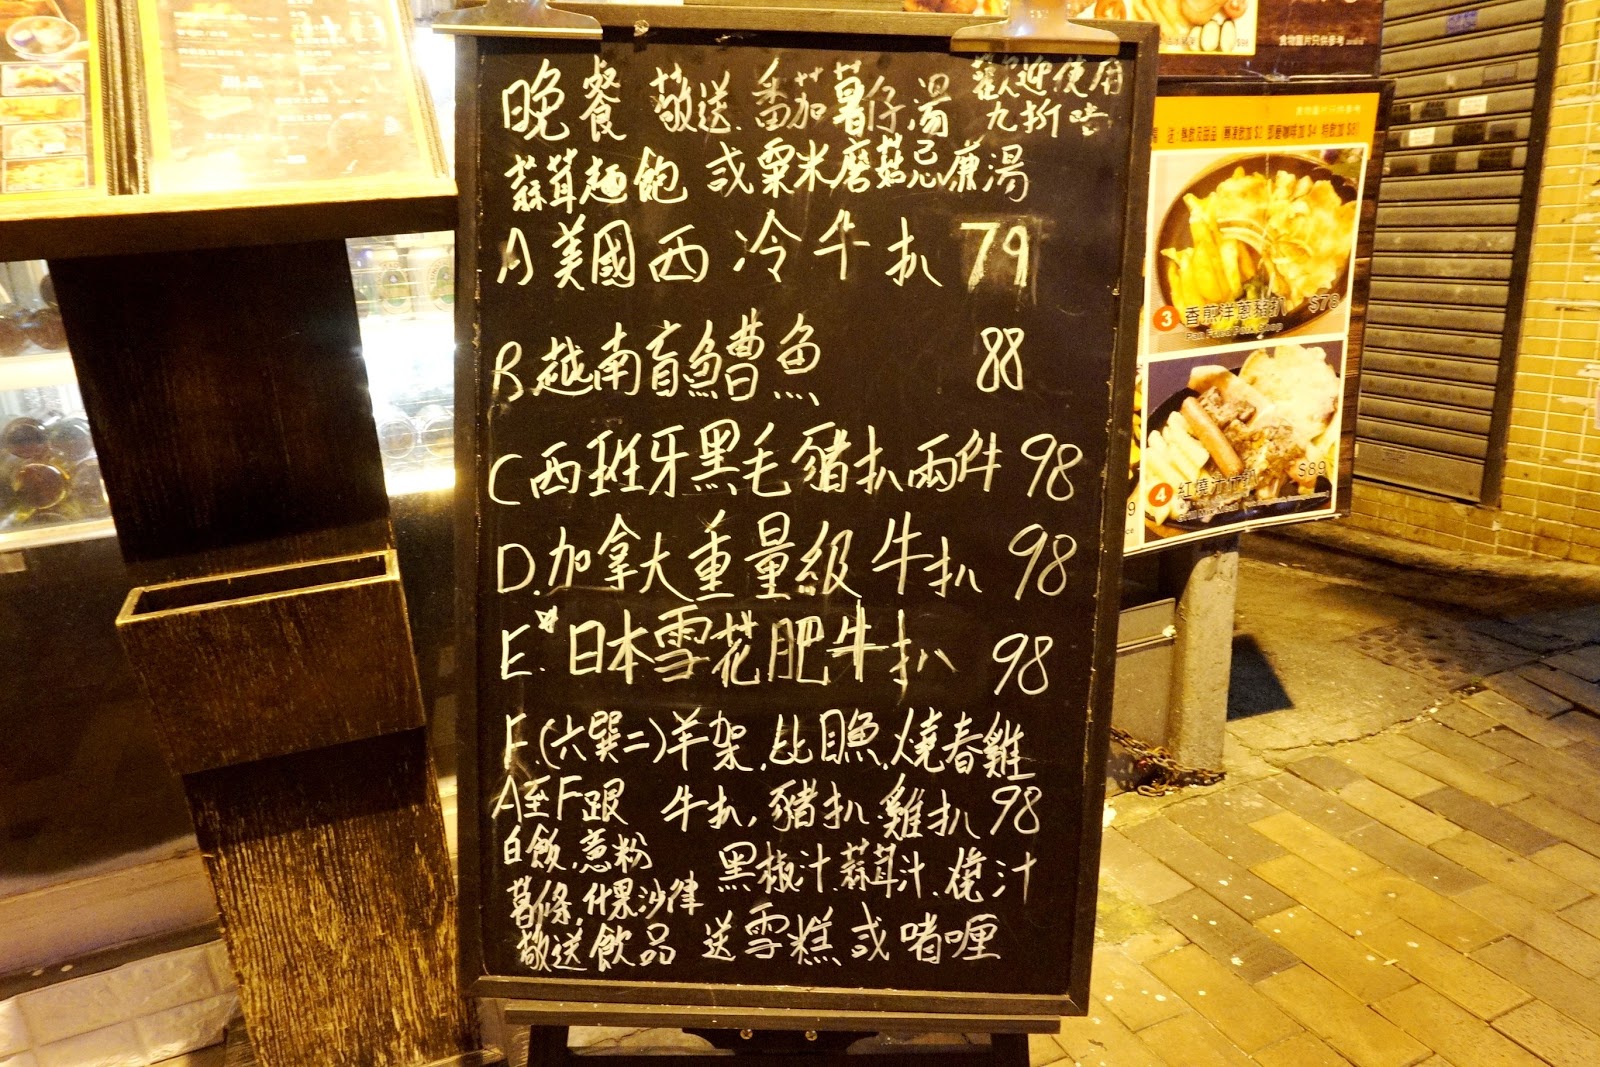 晚餐 敬送.番茄薯仔湯 歡迎使用
九折
蒜茸麵飽 或粟米磨菇忌廉湯
A 美國西冷牛扒 79
B.越南盲鰽魚 88
C 西班牙黑毛豬扒兩件 98
D.加拿大重量級牛扒 98
E.日本雪花肥牛扒 98
F.(六選二)羊架.比目魚.燒春雞
A至F跟 牛扒,豬扒.雞扒 98
白飯.意粉 黑椒汁.蒜茸汁.燒汁
薯條.什果沙律
敬送飲品 送雪糕或啫喱
食物圖片只供參考
3 香煎洋蔥豬扒 $78
4 紅燒汁 $89